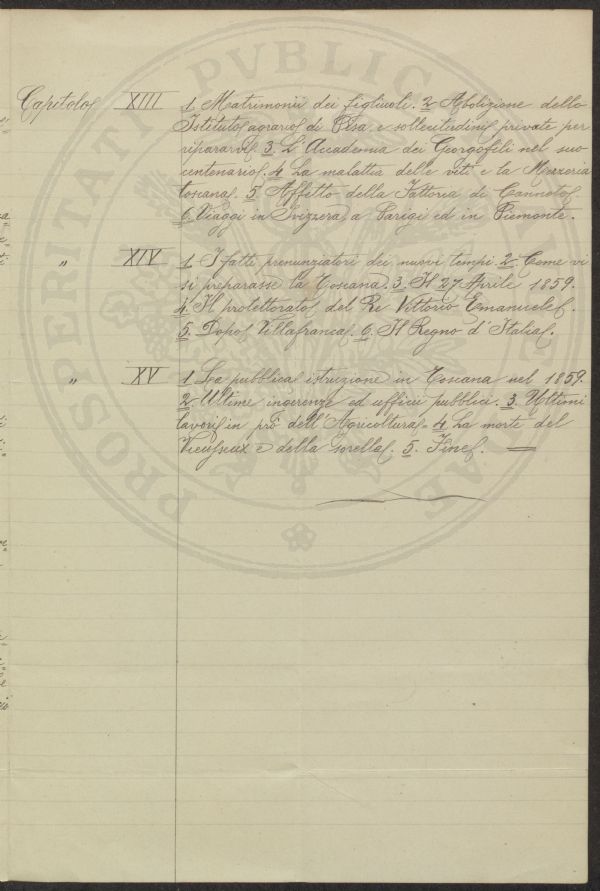 Capitolo XIII 1. Matrimonii dei figliuoli. 2. Abolizione dello
Istituto agrario di Pisa e sollecitudini private per
ripararvi. 3. L'Accademia dei Georgofili nel suo
centenario. 4. La malattia delle viti e la Mezzeria
toscana. 5. Affitto della Fattoria di Canneto.
6. Viaggi in Svizzera, a Parigi ed in Piemonte.
" XIV 1. I fatti prenunziatori dei nuovi tempi. 2. Come vi
si preparasse la Toscana. 3. Il 27 Aprile 1859.
4. Il protettorato del Re Vittorio Emanuele.
5. Dopo Villafranca. 6. Il Regno d'Italia.
" XV 1. La pubblica istruzione in Toscana nel 1859.
2. Ultime ingerenze ed ufficii pubblici. 3. Ultimi
lavori in prò dell'Agricoltura. 4. La morte del
Vieusseux e della sorella. 5. Fine.
PROSPERITATI PVBLICAE